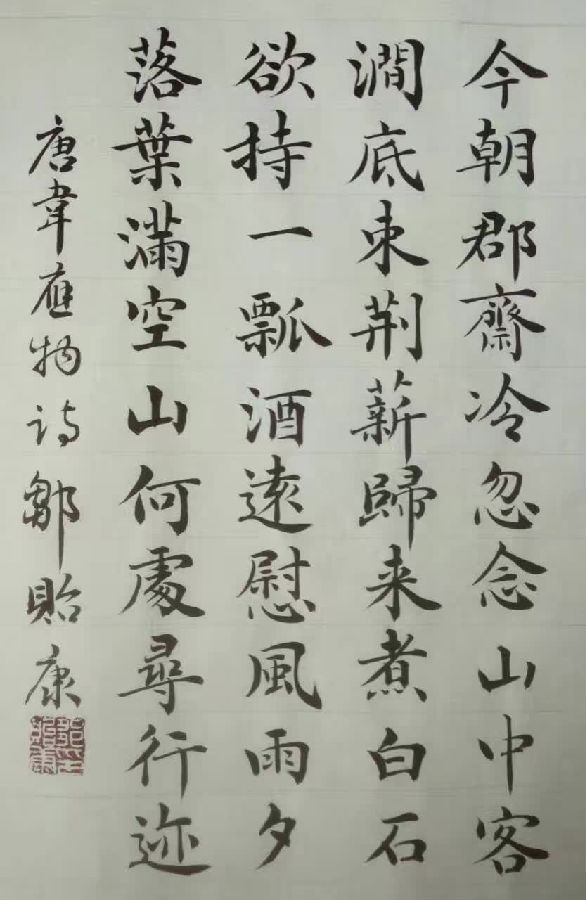 今朝郡齋冷忽念山中客
澗底束荆薪歸来煮白石
欲持一瓢酒遠慰風雨夕
落葉滿空山何處尋行迹
唐韋應物诗鄒貽康